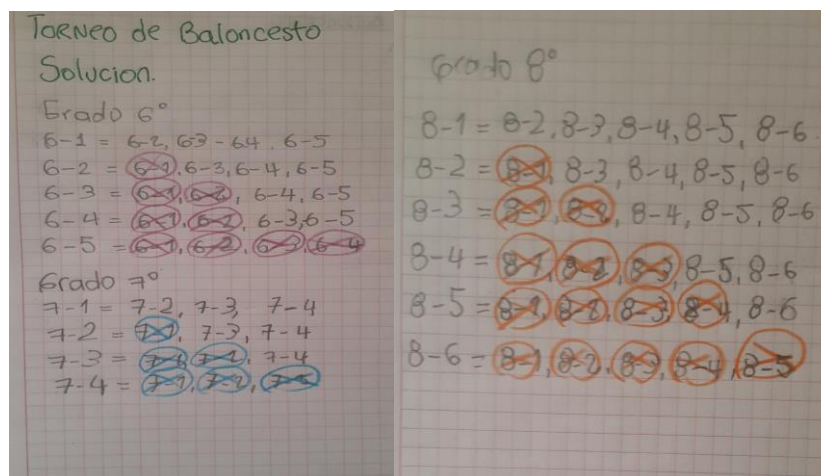 Torneo de Baloncesto
Solucion.
Grado 6°
6-1 = 6-2, 6-3 - 64, 6-5
6-2 = 6-1, 6-3, 6-4, 6-5
6-3 = 6-1, 6-2, 6-4, 6-5
6-4 = 6-1, 6-2, 6-3, 6-5
6-5 = 6-1, 6-2, 6-3, 6-4
Grado 7°
7-1 = 7-2, 7-3, 7-4
7-2 = 7-1, 7-3, 7-4
7-3 = 7-1, 7-2, 7-4
7-4 = 7-1, 7-2,
Grado 8°
8-1 = 8-2, 8-3, 8-4, 8-5, 8-6
8-2 = 8-1, 8-3, 8-4, 8-5, 8-6
8-3 = 8-1, 8-2, 8-4, 8-5, 8-6
8-4 = 8-1, 8-2, 8-3, 8-5, 8-6
8-5 = 8-1, 8-2, 8-3, 8-4, 8-6
8-6 = 8-1, 8-2, 8-3, 8-4, 8-5